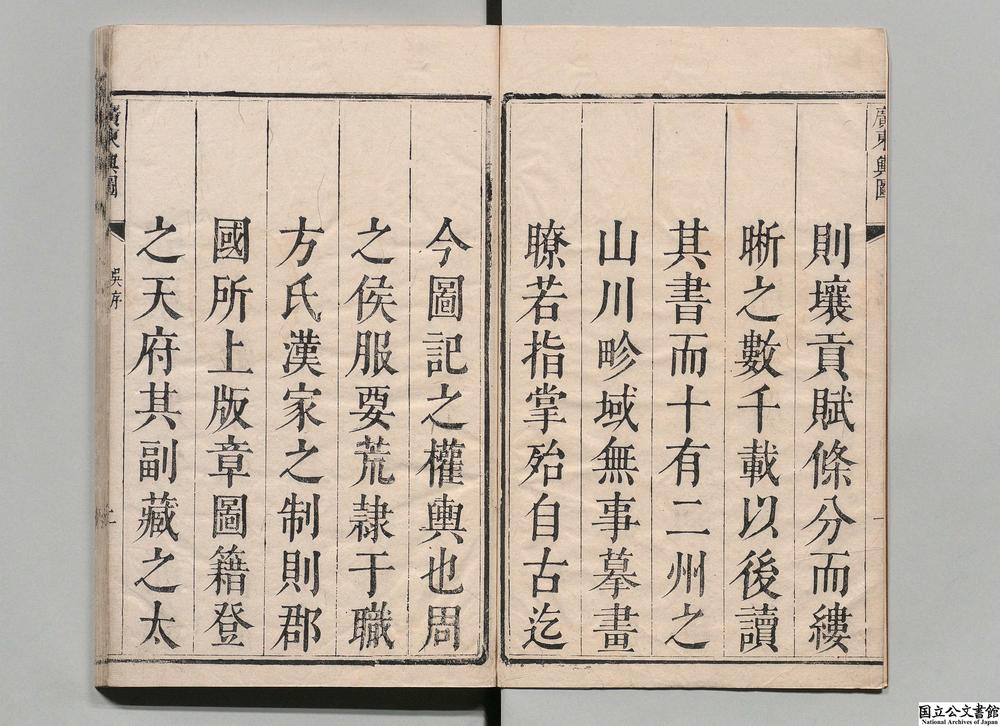 廣東輿圖
則壤貢賦條分而縷
晰之數千載以後讀
其書而十有二州之
山川畛域無事摹畫
瞭若指掌殆自古迄
今圖記之權輿也周
之侯服要荒隷于職
方氏漢家之制則郡
國所上版章圖籍登
之天府其副藏之太
廣東輿圖
吳序
二
国立公文書館
National Archives of Japan